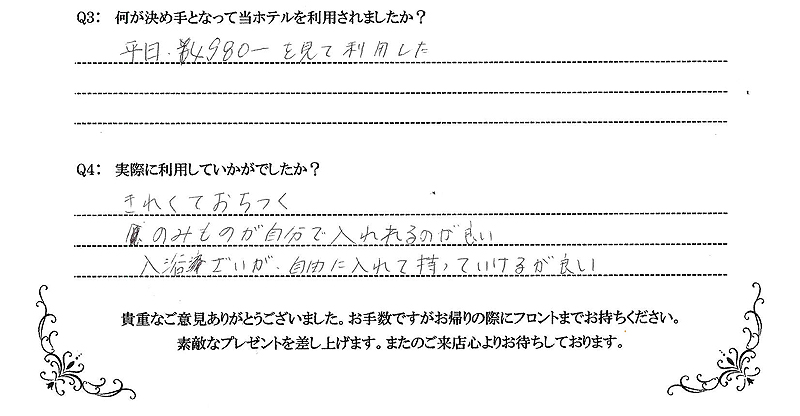 Q3: 何が決め手となって当ホテルを利用されましたか?
平日.¥4980-を見て利用した
Q4: 実際に利用していかがでしたか?
きれくておちつく
のみものが自分で入れれるのが良い
入浴ざいが、自由に入れて持っていけるが良い
貴重なご意見ありがとうございました。お手数ですがお帰りの際にフロントまでお持ちください。
素敵なプレゼントを差し上げます。またのご来店心よりお待ちしております。